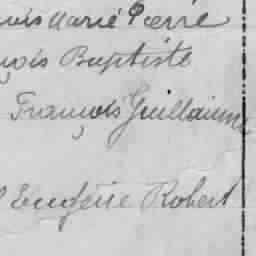 Marie Pierre
çois Baptiste
François Guillaume
Eugène Robert